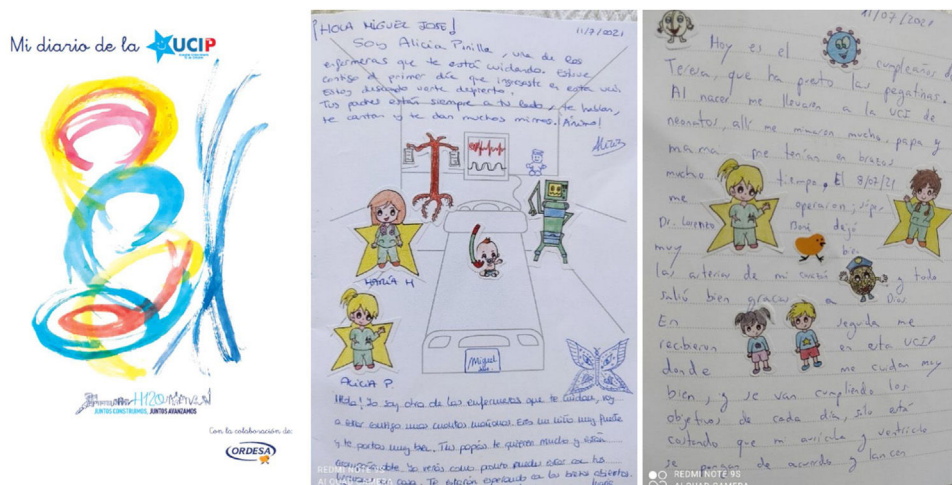 Mi diario de la UCIP
JUNTOS CONSTRUIMOS, JUNTOS AVANZAMOS
Con la colaboración de:
ORDESA
¡HOLA MIGUEL JOSE! 11/7/2021
Soy Alicia Pinilla, una de las
enfermeras que te está cuidando. Estuve
contigo el primer día que ingresaste en esta uci.
Estoy deseando verte despierto.
Tus padres están siempre a tu lado, te hablan,
te cantan y te dan muchos mimos. ¡Ánimo!
Alicia
MARÍA M
ALICIA P.
Miguel
José
Hola! Yo soy otra de las enfermeras que te cuidan, voy
a estar contigo unas cuantas mañanas. Eres un niño muy fuerte
y te portas muy bien. Tus papás te quieren mucho y están
Te estarán esperando con los brazos abiertos.
REDMI NOTE 9S
AI QUAD CAMERA
11/07/2021
Hoy es el cumpleaños
Teresa, que ha puesto las pegatinas.
Al nacer me llevaron a la UCI de
neonatos, allí me mimaron mucho, papa y
mama me tenían en brazos
mucho tiempo. El 8/07/21
me operaron, súper
Dr. Lorenzo Boni dejó
muy bien
las arterias de mi corazón y todo
salió bien gracias a Dios
En seguida me
recibieron en esta UCIP
donde me cuidan muy
bien, y se van cumpliendo los
objetivos de cada día, sólo está
costando que mi aurícula y ventrículo
se pongan de acuerdo y lancen
REDMI NOTE 9S
AI QUAD CAMERA